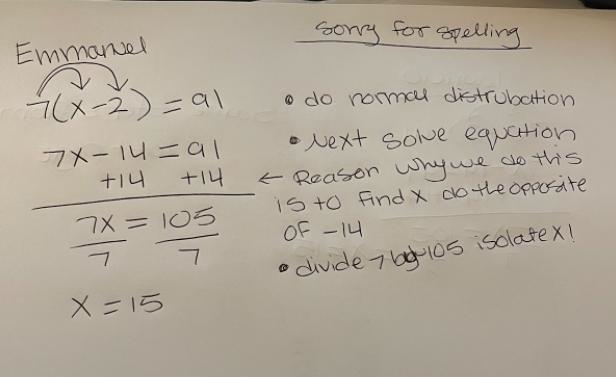 Sorry for spelling
Emmanuel
7(x-2) = 91
7x - 14 = 91
+14 +14
7x = 105
7 7
x = 15
• do normal distrubation
• Next solve equation
← Reason why we do this
is to find x do the opposite
of -14
• divide 7 by 105 isolate x!